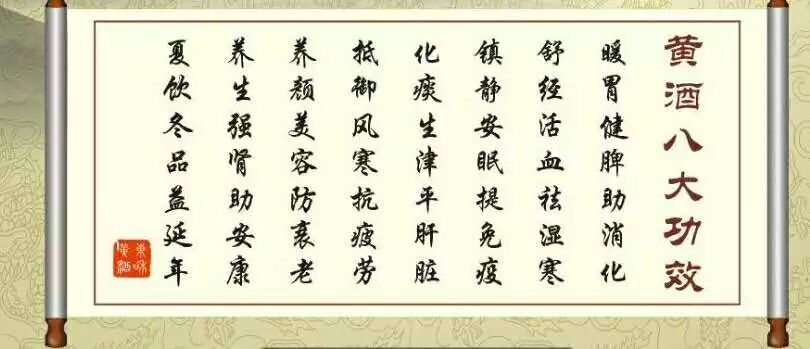 黄酒八大功效
暖胃健脾助消化
舒经活血祛湿寒
镇静安眠提免疫
化痰生津平肝脏
抵御风寒抗疲劳
养颜美容防衰老
养生强肾助安康
夏饮冬品益延年
黄酒